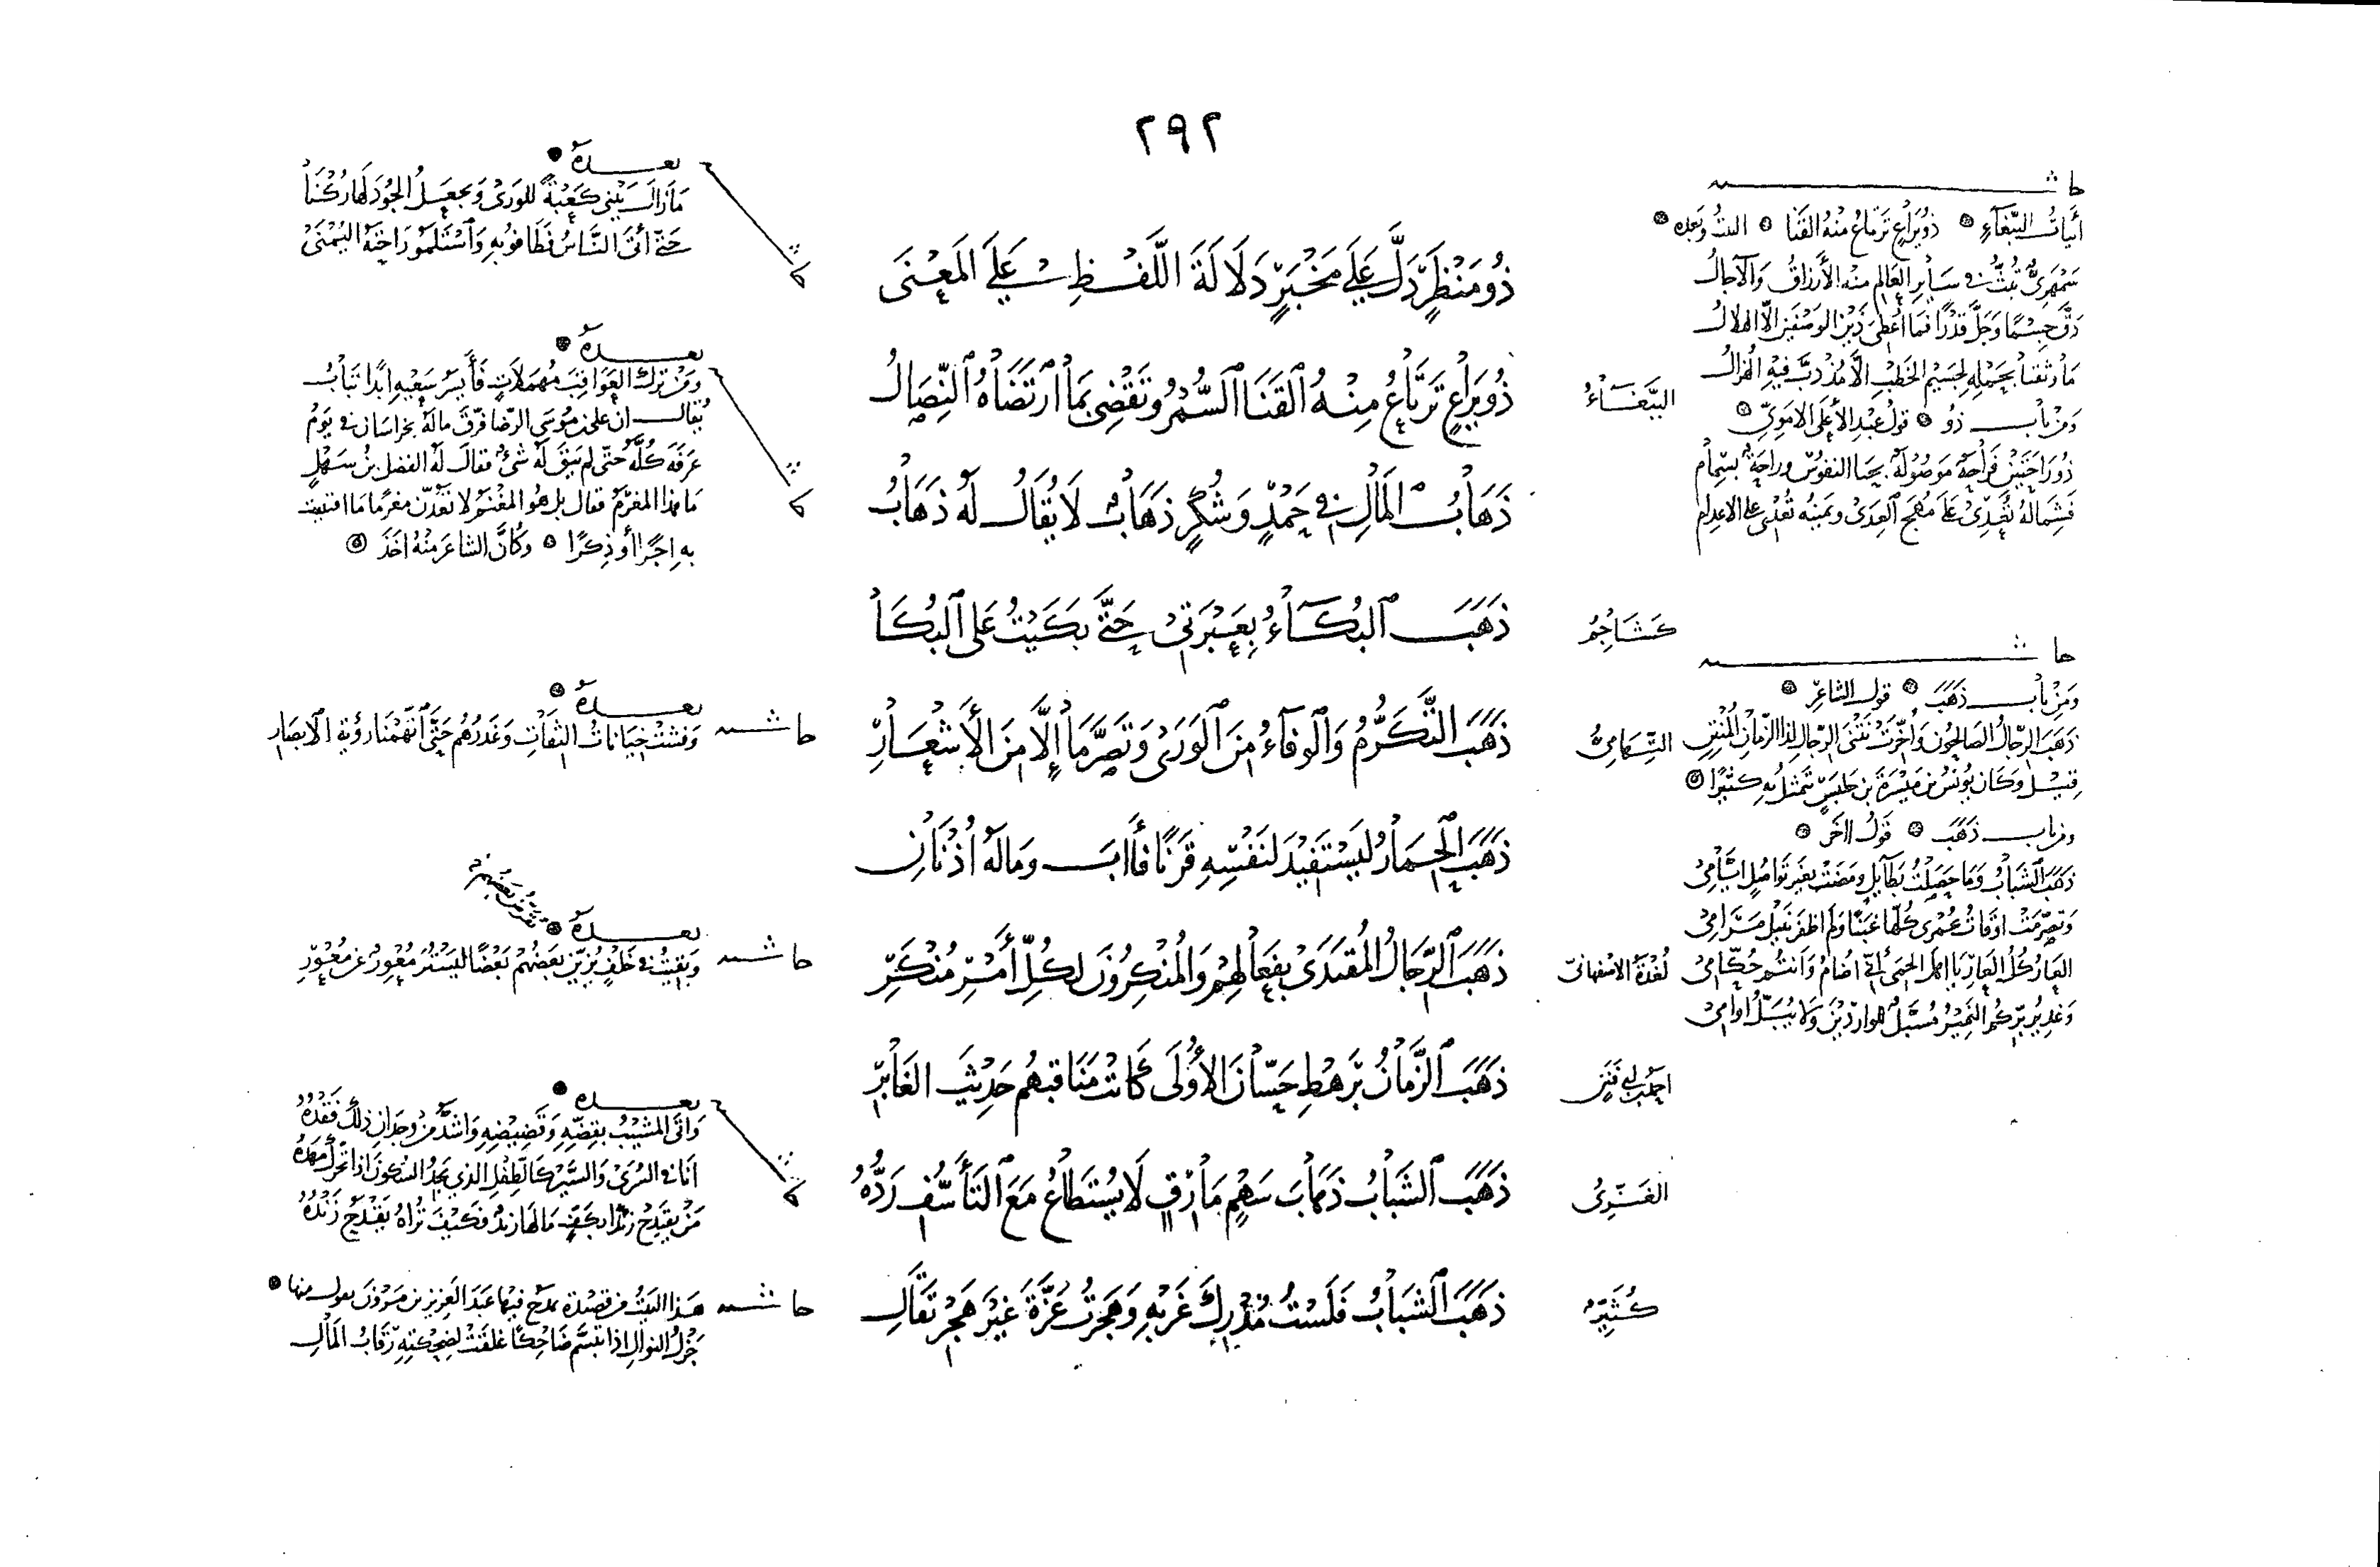 ٢٩٢
ذُو مَنْظَرٍ دَلَّ عَلَى مَخْبَرٍ دَلَالَةَ اللَّفْظِ عَلَى الْمَعْنَى
الببَّغَاءُ
ذُو يَرَاعٍ تَرْتَاعُ مِنْهُ القَنَا السُّمْرُ وَتَقْضِي بِمَا ارْتَضَاهُ النِّصَالُ
ذَهَابُ المَالِ فِي حَمْدٍ وَشُكْرٍ ذَهَابٌ لَا يُقَالُ لَهُ ذَهَابُ
كُشَاجِمُ
ذَهَبَ البُكَاءُ بِعَبْرَتِي حَتَّى بَكَيْتُ عَلَى البُكَا
السَّلامِيُّ
ذَهَبَ التَّكَرُّمُ وَالوَفَاءُ مِنَ الوَرَى وَتَصَرَّمَا إِلَّا مِنَ الأَشْعَارِ
ذَهَبَ الحِمَارُ لِيَسْتَفِيدَ لِنَفْسِهِ قَرْنًا فَآبَ وَمَا لَهُ أُذْنَانِ
لُغْدَةُ الاصْفهانيّ
ذَهَبَ الرِّجَالُ المُقْتَدَى بِفِعَالِهِمْ وَالمُنْكِرُونَ لِكُلِّ أَمْرٍ مُنْكَرِ
احمد بن أبي فَنَنٍ
ذَهَبَ الزَّمَانُ بِرَهْطِ حَسَّانَ الأُولَى كَانَتْ مَنَاقِبُهُم حَدِيثَ الغَابِرِ
الغَزِّيُّ
ذَهَبَ الشَّبَابُ ذَهَابَ سَهْمٍ مَارِقٍ لَا يُسْتَطَاعُ مَعَ التَّأَسُّفِ رَدُّهُ
كُثَيِّرُ
ذَهَبَ الشَّبَابُ فَلَسْتُ مُدْرِكَ غَرْبِهِ وَهَجَرْتُ عَزَّةَ غَيْرَ هَجْرِ تَقَالِ
حاشـــية
أَبْيَاتُ الببَّغَاءِ ذُو يَرَاعٍ تَرْتَاعُ مِنْهُ القَنَا البيتُ وَبَعْدَه
سَمْهَرِيٌّ تُبَثُّ فِي سَائِرِ العَالَمِ مِنْهُ الأَرْزَاقُ وَالآجَالُ
دَقَّ جِسْمًا وَجَلَّ قَدْرًا فَمَا أعْطِيَ ذَيْنِ الوَصْفَيْنِ إلّا الهِلَالُ
مَا وَثِقْنَا بِحَمْلِهِ لِجَسِيمِ الخَطْبِ إلَّا مُذْ دَبَّ فِيهِ الهُزَالُ
وَمِنْ بَابِ ذُو قَولُ عَبْدِ الأَعْلَى الامَوِيّ
ذُو رَاحَتَيْنِ فَرَاحَةٌ مَوصُولَةٌ بِحيَا النفوُسِ وراحَةٌ بسِمَامِ
فَشِمَالهُ تُعْدِي عَلَى مُهَجِ العِدَى وَيَمينُه تُعْدِي عَلَى الاعدَامِ
حاشـــية
وَمِنْ بَابِ ذَهَبَ قولُ الشاعِرِ
ذَهَبَ الرِّجَالُ الصَالِحُون وَأُخِّرَتْ نَتْنَى الرّجالِ لِذَا الزّمَانِ المُنْتِنِ
قِيْلَ وَكَانَ يُونُسُ بن مَيْسَرَةَ بن حَلبَسٍ يَتَمَثّلُ بِهِ كَثِيْرًا
ومن باب ذَهَبَ قَولُ الآخَر
ذَهَبَ الشَّبَابُ وَمَا حَصَلْتُ بطَائِلٍ وَمَضَتْ بغَيرِ تَوَاصُلٍ ايَّامِي
وَتَصَرَّمَتْ اوْقَاتُ عُمْرِي كُلّهَا عَبَثًا وَلَم اظفَر بِنَيْلِ مَرَامِي
العَارُ كُلُّ العَارِ يَا اهلَ الحِمَى أَنّي اضَامُ وَانتُم حُكَّامِي
وَغَدِيرُ بِرِّكُم النَّمِيْرُ مُسَبَّلٌ للوارِدِيْنَ وَلا يُبَلُّ اوَامِي
بعــده
مَا زَالَ يَبْنِي كَعْبَةً لِلوَرَى وَيَجعَلُ الجُودَ لَهَا رُكْنَا
حَتَّى أتَى النَّاسُ فَطَافُوا بِهِ وَاسْتَلَمُوا رَاحَتَهُ اليُمْنَى
بعــده
وَمَنْ تَركَ العَوَاقِبَ مُهمَلَاتٍ فَأَيْسَرُ سَعْيِهِ ابَدًا تَبَابُ
يُقَالُ ان علي بن مُوسَى الرّضا فَرَّقَ مَالَهُ بخراسَانَ في يَوْمُ
عَرفَةَ كُلَّهُ حَتّى لم يَبْقَ لَهُ شَيْءٌ فقالَ لَهُ الفضلُ بنُ سَهْلٍ
مَا هذا المَغْرَمُ فقال بل هُو المَغْنَمُ لا تَعُدّنَّ مغرمًا مَا اقتنيت
بِهِ اجْرًا أو ذِكْرًا وَكَانَّ الشاعَر مِنْهُ اخَذَ
حاشـــية
بعــده
وَفَشتْ خيَانَاتُ الثقَاتِ وَغَدْرُهُم حَتَّى اتّهَمْنَا رؤيَةَ الأبصَارِ
حاشـــية
بعــده
وَبَقِيتُ فِي خَلَفٍ يُزَيِّنُ بَعضُهُمْ بَعْضًا ليَسْتُرَ مُعْوِرٌ عَن مُعْوِرِ
بعــده
وَاتَى المَشِيْبُ بقَضّهِ وَقَضِيضِهِ وَاشَدُّ مِن وِجدَانِ ذلِكَ فَقْدُهُ
انَا فِي السُّرَى وَالسَّيْرِ كَالطِّفْلِ الذي يَجِدُ السُكونَ اذا تَحَرَّكَ مَهْدُهُ
مَنْ يَقْتَدِح زَنْدًا بكَفٍّ مَا لَهَا زَنْدٌ فَكَيْفَ تُرَاهُ يَقْدَحُ زَنْدُهُ
حاشـــية
هَذا البَيْتُ مِن قصيْدة يمدَح فيْهَا عَبدَ العَزيز بن مَروْانَ يقول منها
جَزْلُ النوالِ اذا تبَسَّمَ ضَاحِكًا غلقَتْ لضِحْكتِهِ رِقَابُ المَالِ